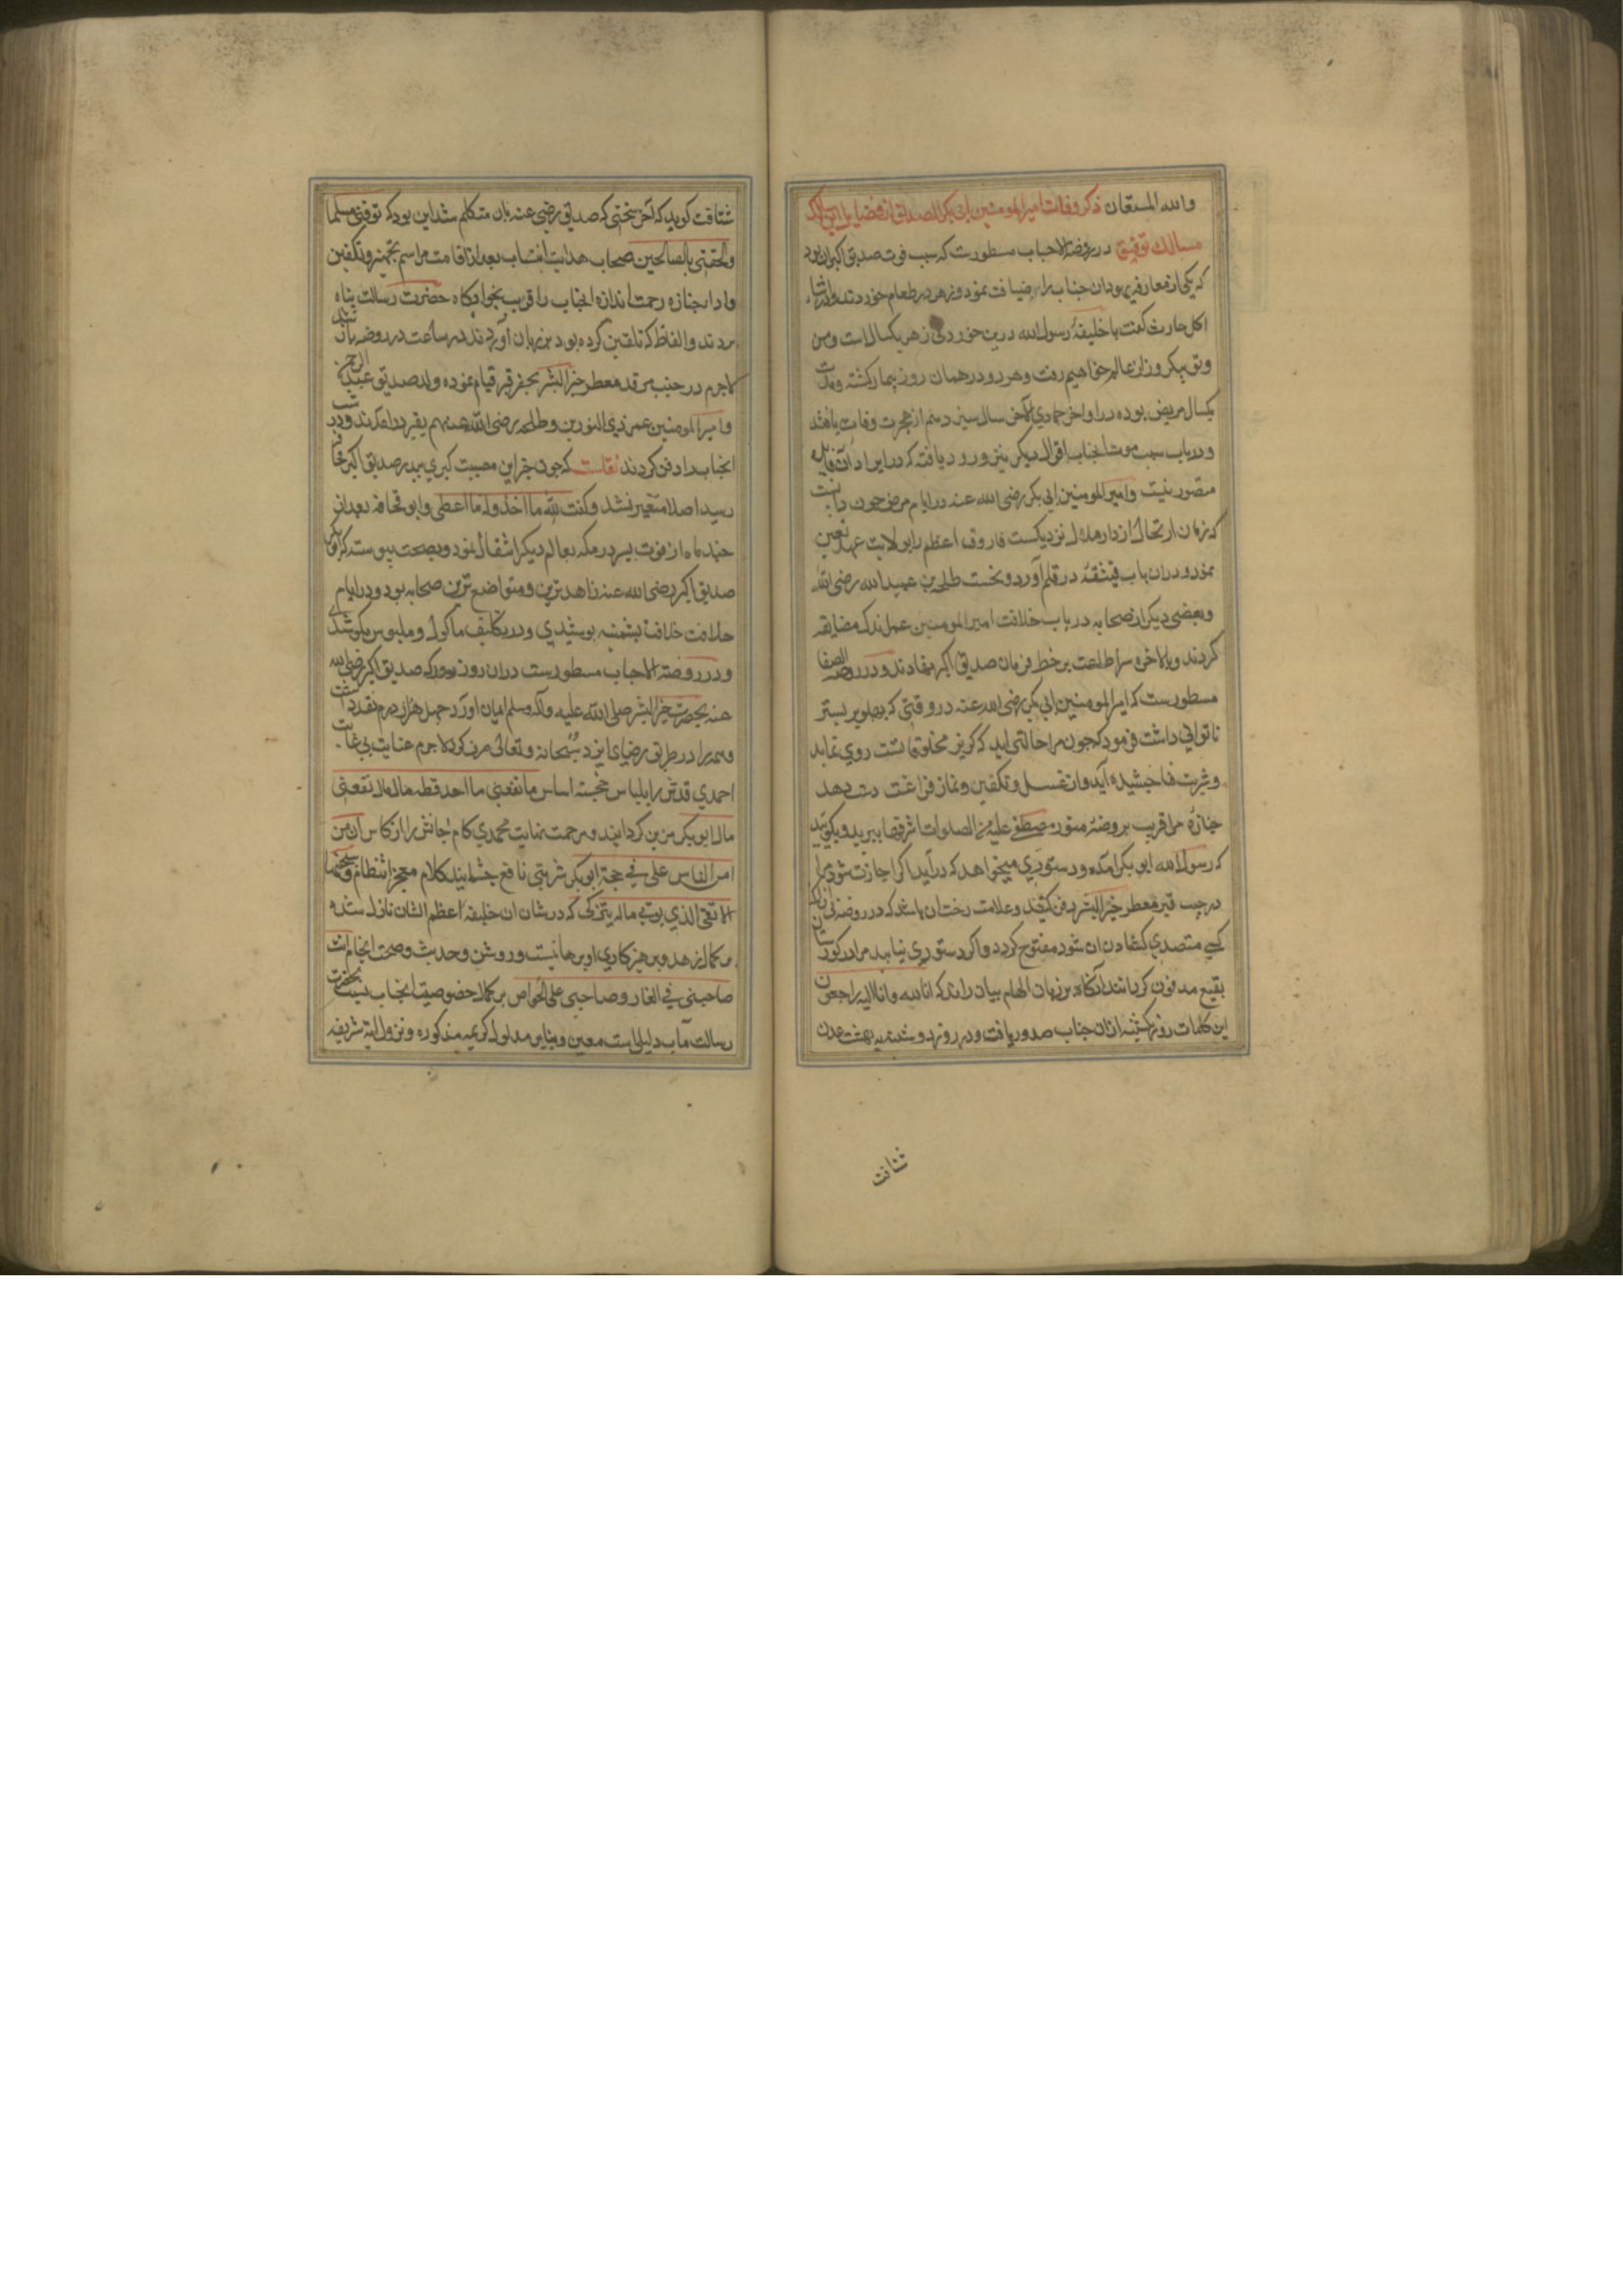 والله المستعان ذکر وفات امیر المومنین ابی بکر الصدیق از قضایای
مسالك توفیق در روضة الاحباب مسطورست که سبب فوت صدیق اکبر آن بود
که یکی از معارف یهودان جناب را ضیافت نمود و زهر در طعام خوردند و در اثناء
اکل حارث کفت یا خلیفهٔ رسول الله درین خوردنی زهر یکساله است و من
وتو بیکروز ازین عالم خواهیم رفت و هر دو در همان روز بیمار کشته ومدت
یکسال مریض بوده در اواخر جمادی الآخر سال سیزدهم از هجرت وفات یافتند
و در باب سبب موت انجناب اقوال دیکر نیز ورود یافته که در ایراد آن فایده
متصور نیست وامیر المومنین ابی بکر رضی الله عنه در ایام مرض چون دانست
که زمان ارتحال از دار ملال نزدیکست فاروق اعظم را بولایت عهد تعین
نمود و در آن باب وثیقهٔ در قلم آورد و نخست طلحه بن عبید الله رضی الله
وبعضی دیکر از صحابه در باب خلافت امیر المومنین عمر اندك مضایقه
کردند وبالاخره سر اطاعت بر خط فرمان صدیق اکبر نهادند و در روضة الصفا
مسطورست که امیر المومنین ابی بکر رضی الله عنه در وقتی که پهلو بر بستر
ناتوانی داشت فرمود که چون مرا حالتی اید که کریز مخلوقات است روی نماید
و شربت فنا چشیده آید و از تغسیل و تکفین و نماز فراغت دست دهد
جنازهٔ مرا قریب بروضهٔ منور مصطفی علیه من الصلوات اشرفها ببرید و بکویید
که رسول الله ابو بکر امده و دستوری میخواهد که در آید اکر اجازت شود مرا
در جنب قبر معطر خیر البشر دفن کنید و علامت رخصت آن باشد که در روضه بی آنکه
کسی متصدی کشادن ان شود مفتوح کردد و اکر دستوری نیابید مرا در کورستان
بقیع مدفون کردانند آنکاه بر زبان الهام بیان راند که انا لله وانا الیه راجعون
این کلمات روز یکشنبه از ان جناب صدور یافت و در روز دوشنبه ببهشت عدن
شتافت
شتافت کویند که آخر سخنی که صدیق رضی عنه بان متکلم شد این بود که توفنی مسلما
والحقنی بالصالحین صحاب هدایت انتساب بعد از اقامت مراسم تجهیز و تکفین
و ادا جنازه رحمت اندازه انجناب را قریب بخوابکاه حضرت رسالت پناه
بردند و الفاظ که تلقین کرده بود بر زبان آوردند در ساعت در روضه باز شد
لاجرم در جنب مرقد معطر خیر البشر بحفر قبر قیام نموده ولد صدیق عبد الرحمن
وامیر المومنین عمر ذی النورین وطلحه رضی الله عنهم بقبر در امدند و در شب
انجناب را دفن کردند نقلست که چون خبر این مصیبت کبری بپدر صدیق اکبر ابو قحافه
رسید اصلا متغیر نشد و کفت لله ما اخذ وله ما اعطی وابو قحافه بعد از
چند ماه از فوت پسر در مکه بعالم دیکر انتقال نمود و بصحت پیوسته که ابو بکر
صدیق اکبر رضی الله عنه زاهد ترین و متواضع ترین صحابه بود و در ایام
خلافت خلافت پشمینه پوشیدی و در تکلیف ماکول و ملبوس نکوشیدی
و در روضة الاحباب مسطورست در ان روز که صدیق اکبر رضی الله
عنه بحضرت خیر البشر صلی الله علیه وآله وسلم ایمان آورد چهل هزار درم نقد داشت
و همه را در طریق رضای ایزد سبحانه و تعالی صرف کرد لاجرم عنایت بی غایت
احمدی قدش را بلباس خجسته اساس ما نفعنی ما احد قط مال ما لا نفعنی
مال ابو بکر مزین کردانید و مرحمت نهایت محمدی کام جانش را از کاس ان من
امن الناس علی فی صحبة ابو بکر شربتی نافع چشانید کلام معجز انتظام وسیجنبها
الاتقی الذی یوتی ماله یتزکی که در شان ان خلیفه اعظم الشان نازل شده
بر کمال زهد و پرهیزکاری او برهانیست روشن و حدیث وصحت انجام انت
صاحبنی فی الغار وصاحبی علی الحوض بر کمال خصوصیت انجناب نسبت بحضرت
رسالت مآب دلیلیست معین و بنابر مدلول کریمه مذکوره و نزول آیه شریفه